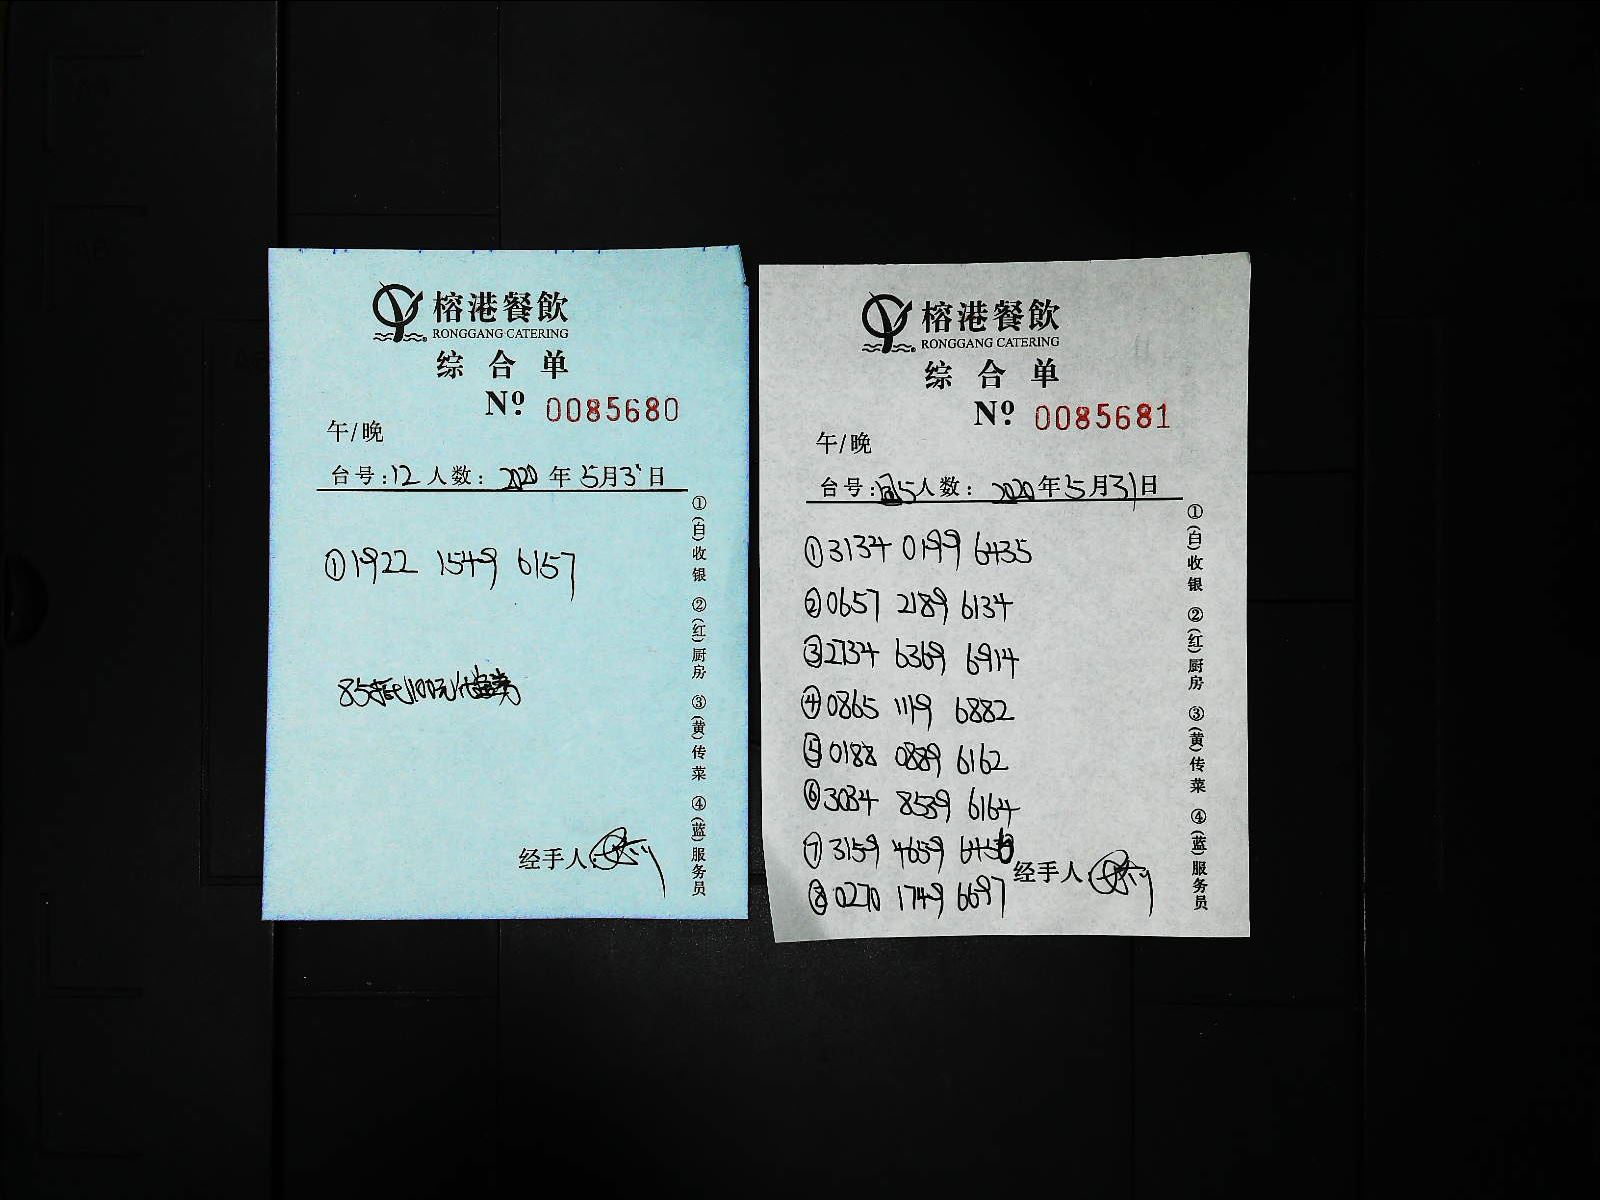 榕港餐飲
RONGGANG CATERING
综合单
Nº 0085680
午/晚
台号:12 人数: 2020年5月31日
①1922 1549 6157
85抵100元代金券
经手人:
①(白)收银 ②(红)厨房 ③(黄)传菜 ④(蓝)服务员
榕港餐飲
RONGGANG CATERING
综合单
Nº 0085681
午/晚
台号: 人数: 2020年5月31日
①3134 0199 6435
②0657 2189 6134
③2134 6369 6914
④0865 1119 6882
⑤0188 0889 6162
⑥3034 8539 6164
⑦3159 4659
⑧0270 1749 6697
经手人:
①(白)收银 ②(红)厨房 ③(黄)传菜 ④(蓝)服务员